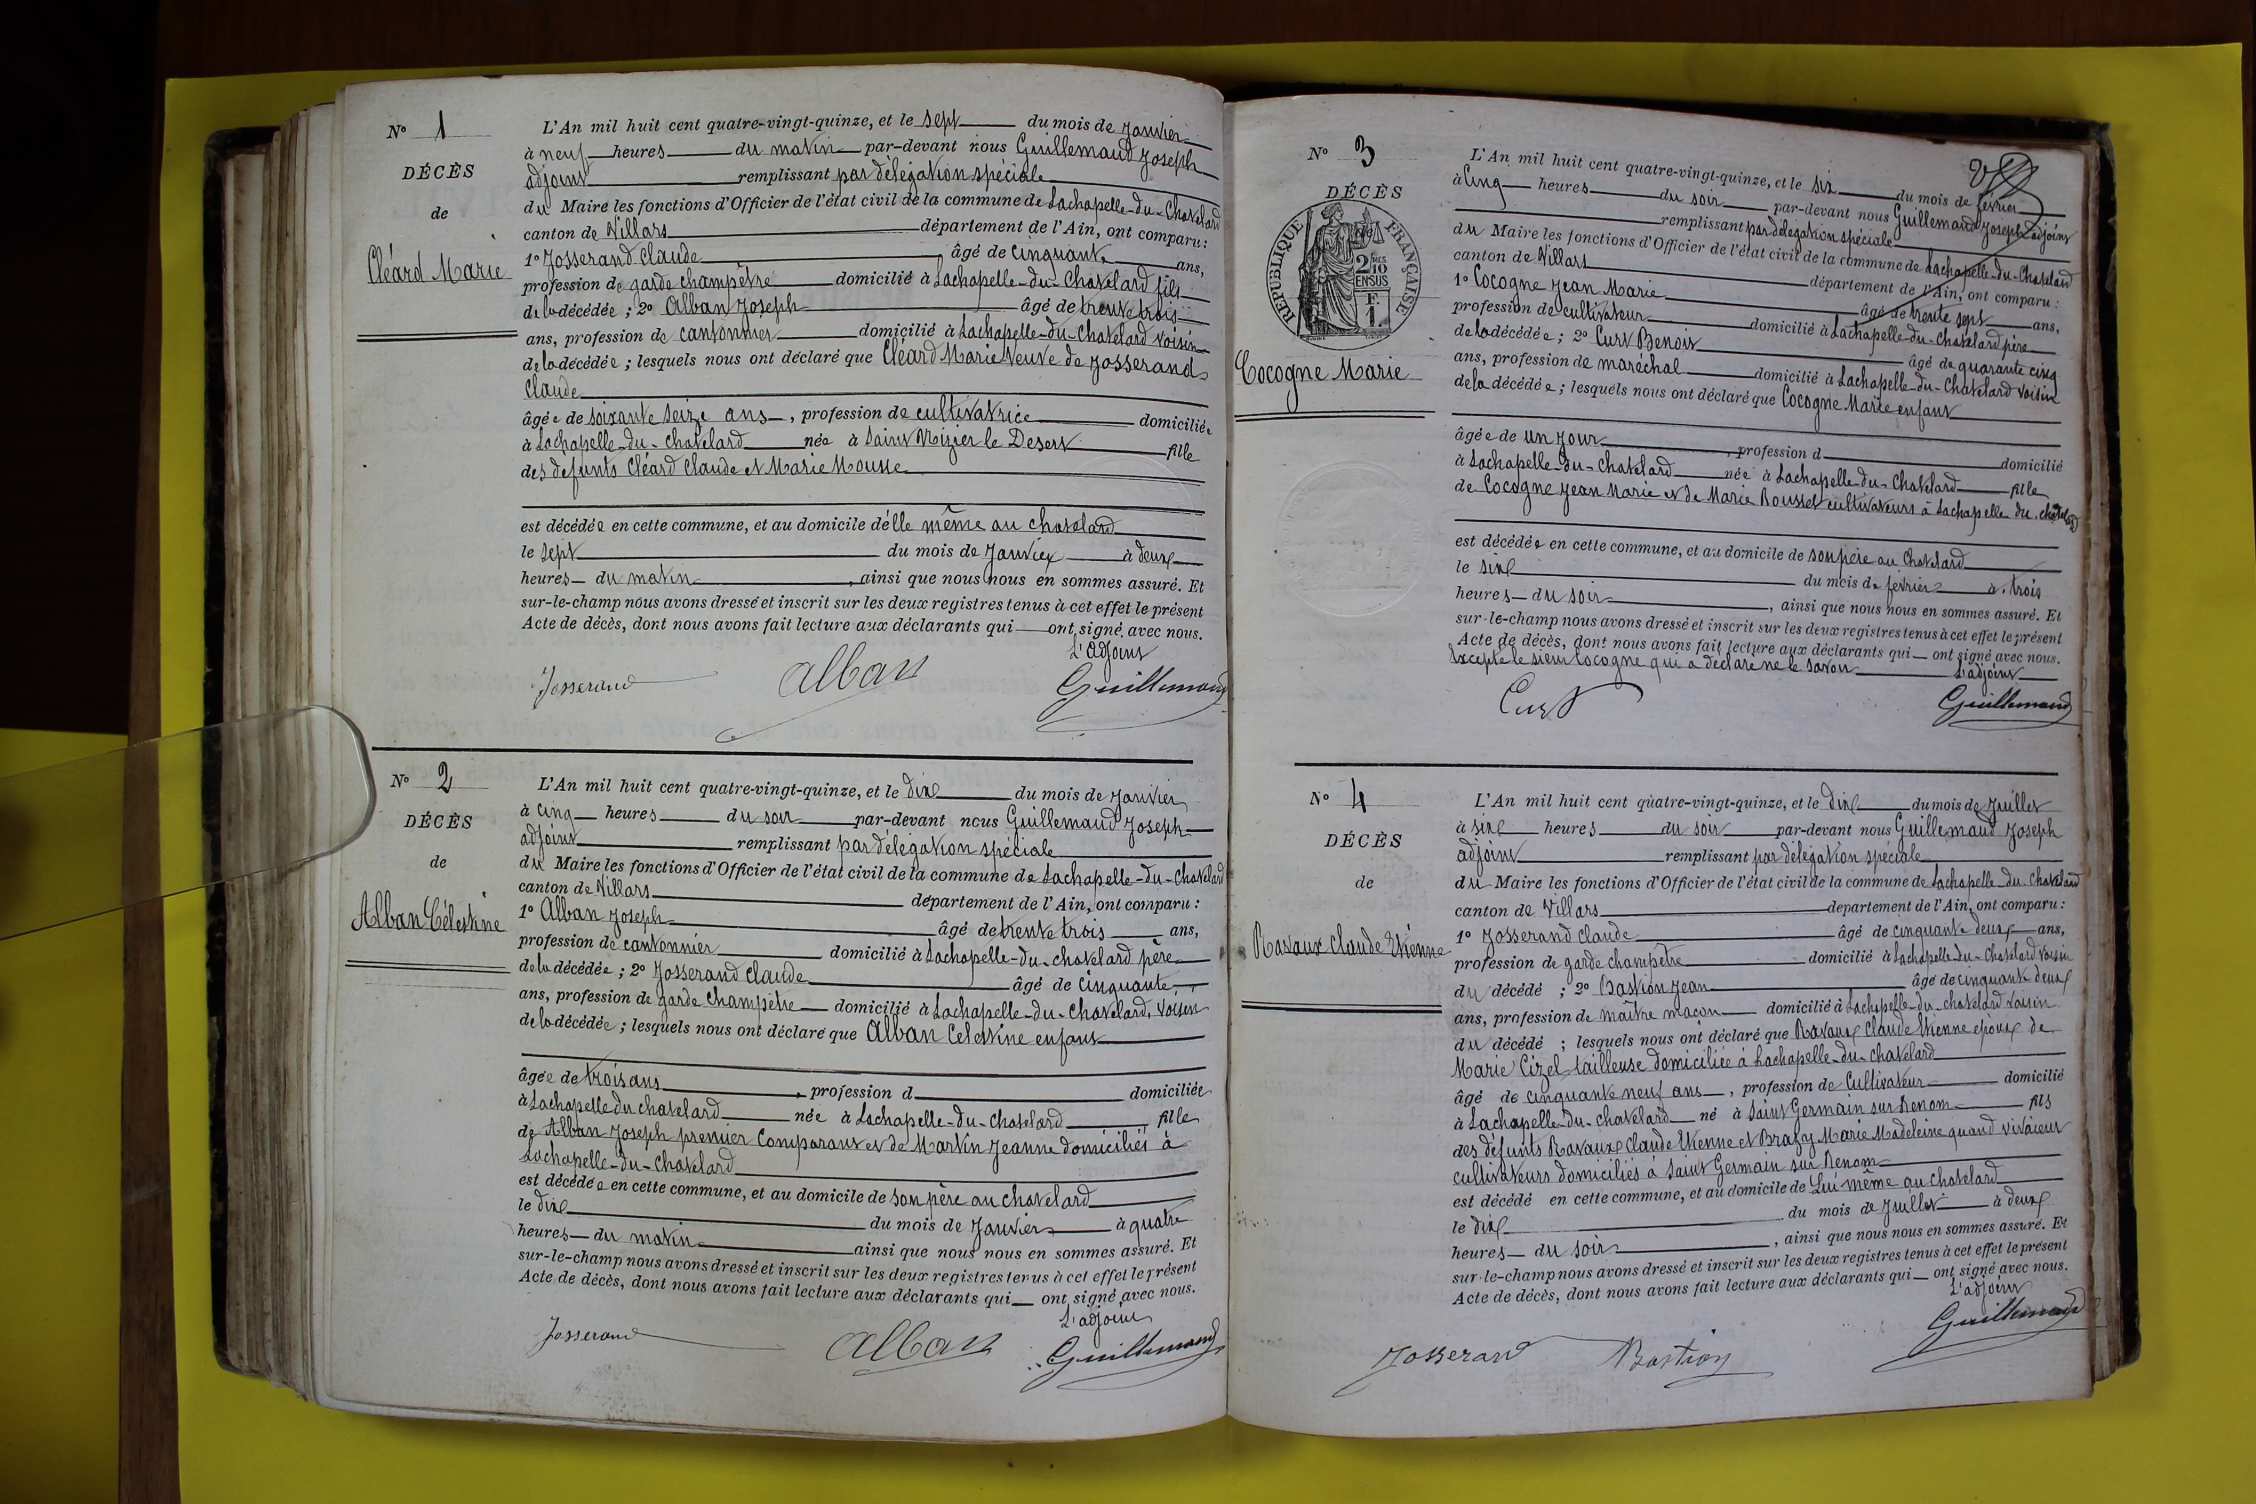 N° 1
DÉCÈS
de
Cléard Marie
L'An mil huit cent quatre-vingt-quinze, et le sept du mois de Janvier
à neuf heures du matin par-devant nous Guillemaud Joseph
adjoint remplissant par délégation spéciale
du Maire les fonctions d'Officier de l'état civil de la commune de Lachapelle-du-Chatelard
canton de Villars département de l'Ain, ont comparu :
1° Josserand Claude âgé de cinquante ans,
profession de garde champêtre domicilié à Lachapelle-du-Chatelard fils
de la décédée ; 2° Alban Joseph âgé de trente trois
ans, profession de cantonnier domicilié à Lachapelle-du-Chatelard voisin
de la décédée ; lesquels nous ont déclaré que Cléard Marie Veuve de Josserand
Claude
âgée de soixante seize ans, profession de cultivatrice domiciliée
à Lachapelle-du-Chatelard née à Saint Nizier le Desert fille
des défunts Cléard Claude et Marie Mousse
est décédée en cette commune, et au domicile d'élle même au chatelard
le sept du mois de Janvier à deux
heures du matin, ainsi que nous nous en sommes assuré. Et
sur-le-champ nous avons dressé et inscrit sur les deux registres tenus à cet effet le présent
Acte de décès, dont nous avons fait lecture aux déclarants qui ont signé avec nous.
L'adjoint
Josserand Alban Guillemaud
N° 2
DÉCÈS
de
Alban Célestine
L'An mil huit cent quatre-vingt-quinze, et le dix du mois de Janvier
à cinq heures du soir par-devant nous Guillemaud Joseph
adjoint remplissant par délégation spéciale
du Maire les fonctions d'Officier de l'état civil de la commune de Lachapelle-du-Chatelard
canton de Villars département de l'Ain, ont comparu :
1° Alban Joseph âgé de trente trois ans,
profession de cantonnier domicilié à Lachapelle-du-chatelard père
de la décédée ; 2° Josserand Claude âgé de cinquante
ans, profession de garde champêtre domicilié à Lachapelle-du-Chatelard, voisin
de la décédée ; lesquels nous ont déclaré que Alban Celestine enfant
âgée de trois ans, profession d domiciliée
à Lachapelle du chatelard née à Lachapelle-du-Chatelard, fille
de Alban Joseph premier comparant et de Martin Jeanne domiciliés à
Lachapelle-du-Chatelard
est décédée en cette commune, et au domicile de son père au chatelard
le dix du mois de Janvier à quatre
heures du matin ainsi que nous nous en sommes assuré. Et
sur-le-champ nous avons dressé et inscrit sur les deux registres tenus à cet effet le présent
Acte de décès, dont nous avons fait lecture aux déclarants qui ont signé avec nous.
L'adjoint
Josserand Alban Guillemaud
N° 3
DÉCÈS
RÉPUBLIQUE FRANÇAISE
2/10
EN SUS
F.
1.
Cocogne Marie
L'An mil huit cent quatre-vingt-quinze, et le six du mois de fevrier
à cinq heures du soir par-devant nous Guillemaud Joseph adjoint
remplissant par délegation spéciale
du Maire les fonctions d'Officier de l'état civil de la commune de Lachapelle-du-Chatelard
canton de Villars département de l'Ain, ont comparu :
1° Cocogne Jean Marie âgé de trente sept ans,
profession de cultivateur domicilié à Lachapelle-du-Chatelard père
de la décédée ; 2° Curt Benoit âgé de quarante cinq
ans, profession de maréchal domicilié à Lachapelle-du-Chatelard voisin
de la décédée ; lesquels nous ont déclaré que Cocogne Marie enfant
âgée de un jour, profession d domicilié
à Lachapelle-du-Chatelard née à Lachapelle-du-Chatelard fille
de Cocogne Jean Marie et de Marie Rousset cultivateurs à Lachapelle du chatelard
est décédée en cette commune, et au domicile de son père au Chatelard
le six du mois de fevrier à trois
heures du soir, ainsi que nous nous en sommes assuré. Et
sur-le-champ nous avons dressé et inscrit sur les deux registres tenus à cet effet le présent
Acte de décès, dont nous avons fait lecture aux déclarants qui ont signé avec nous.
Excepté le sieur Cocogne qui a déclaré ne le savoir L'adjoint
Curt Guillemaud
N° 4
DÉCÈS
de
Ravaux Claude Etienne
L'An mil huit cent quatre-vingt-quinze, et le dix du mois de Juillet
à six heures du soir par-devant nous Guillemaud Joseph
adjoint remplissant par délégation spéciale
du Maire les fonctions d'Officier de l'état civil de la commune de Lachapelle-du-Chatelard
canton de Villars département de l'Ain, ont comparu :
1° Josserand Claude âgé de cinquante deux ans,
profession de garde champêtre domicilié à Lachapelle-du-Chatelard voisin
du décédé ; 2° Bastion Jean âgé de cinquante deux
ans, profession de maître maçon domicilié à Lachapelle-du-chatelard voisin
du décédé ; lesquels nous ont déclaré que Ravaux Claude Etienne epoux de
Marie Cizel tailleuse domiciliée à Lachapelle-du-chatelard
âgé de cinquante neuf ans, profession de Cultivateur domicilié
à Lachapelle-du-chatelard né à Saint Germain sur Renom fils
des défunts Ravaux Claude Etienne et Brazy Marie Madeleine quand vivaient
cultivateurs domiciliés à Saint Germain sur Renom
est décédé en cette commune, et au domicile de Lui même au chatelard
le dix du mois de Juillet à deux
heures du soir, ainsi que nous nous en sommes assuré. Et
sur-le-champ nous avons dressé et inscrit sur les deux registres tenus à cet effet le présent
Acte de décès, dont nous avons fait lecture aux déclarants qui ont signé avec nous.
L'adjoint
Josserand Bastion Guillemaud